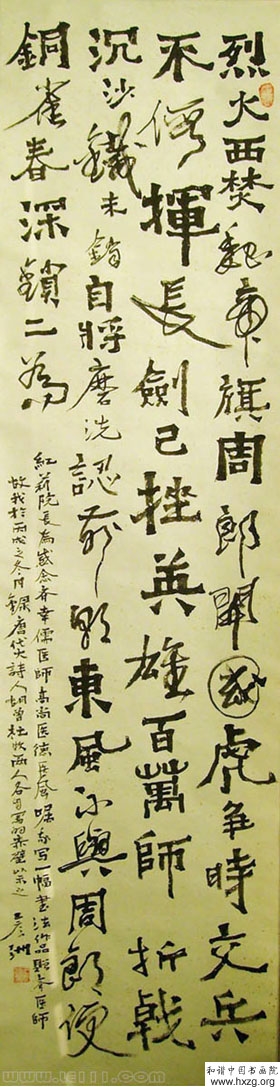 烈火西焚魏帝旗周郎開國虎争時交兵
不假揮長劍已挫英雄百萬師折戟
沉沙鐵未銷自將磨洗認前朝東風不與周郎便
銅雀春深鎖二喬
院長為感念喬幸儒医師高尚医德医風囑余写一幅書法作品贈喬医師
故我於丙戌之冬月録唐代大詩人胡曾杜牧两人各自写的赤壁以示之
和谐中国书画院